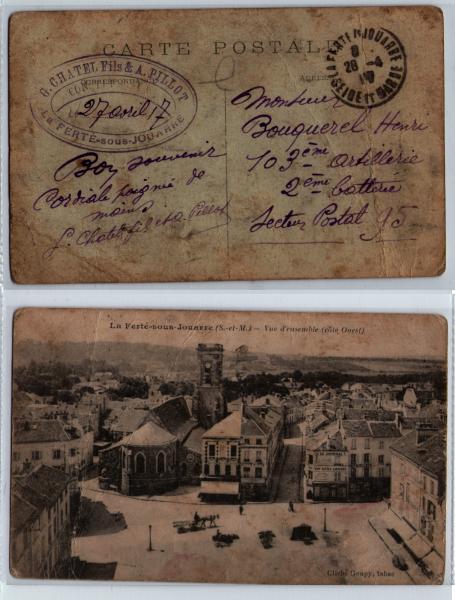 CARTE POSTALE
CORRESPONDANCE
ADRESSE
G. CHATEL Fils & A. PILLOT
LA FERTÉ-sous-JOUARRE
27 avril 17
LA FERTE S JOUARRE
8
28 -4
SEINE ET MARNE
Bon souvenir
Cordiale poignée de
mains
G. Chatel fils et A. Pillot
Monsieur
Bouquerel Henri
103ème artillerie
2ème batterie
Secteur Postal 95
La Ferté-sous-Jouarre (S.-et-M.) - Vue d'ensemble (côté Ouest)
Cliché Goupy, tabac